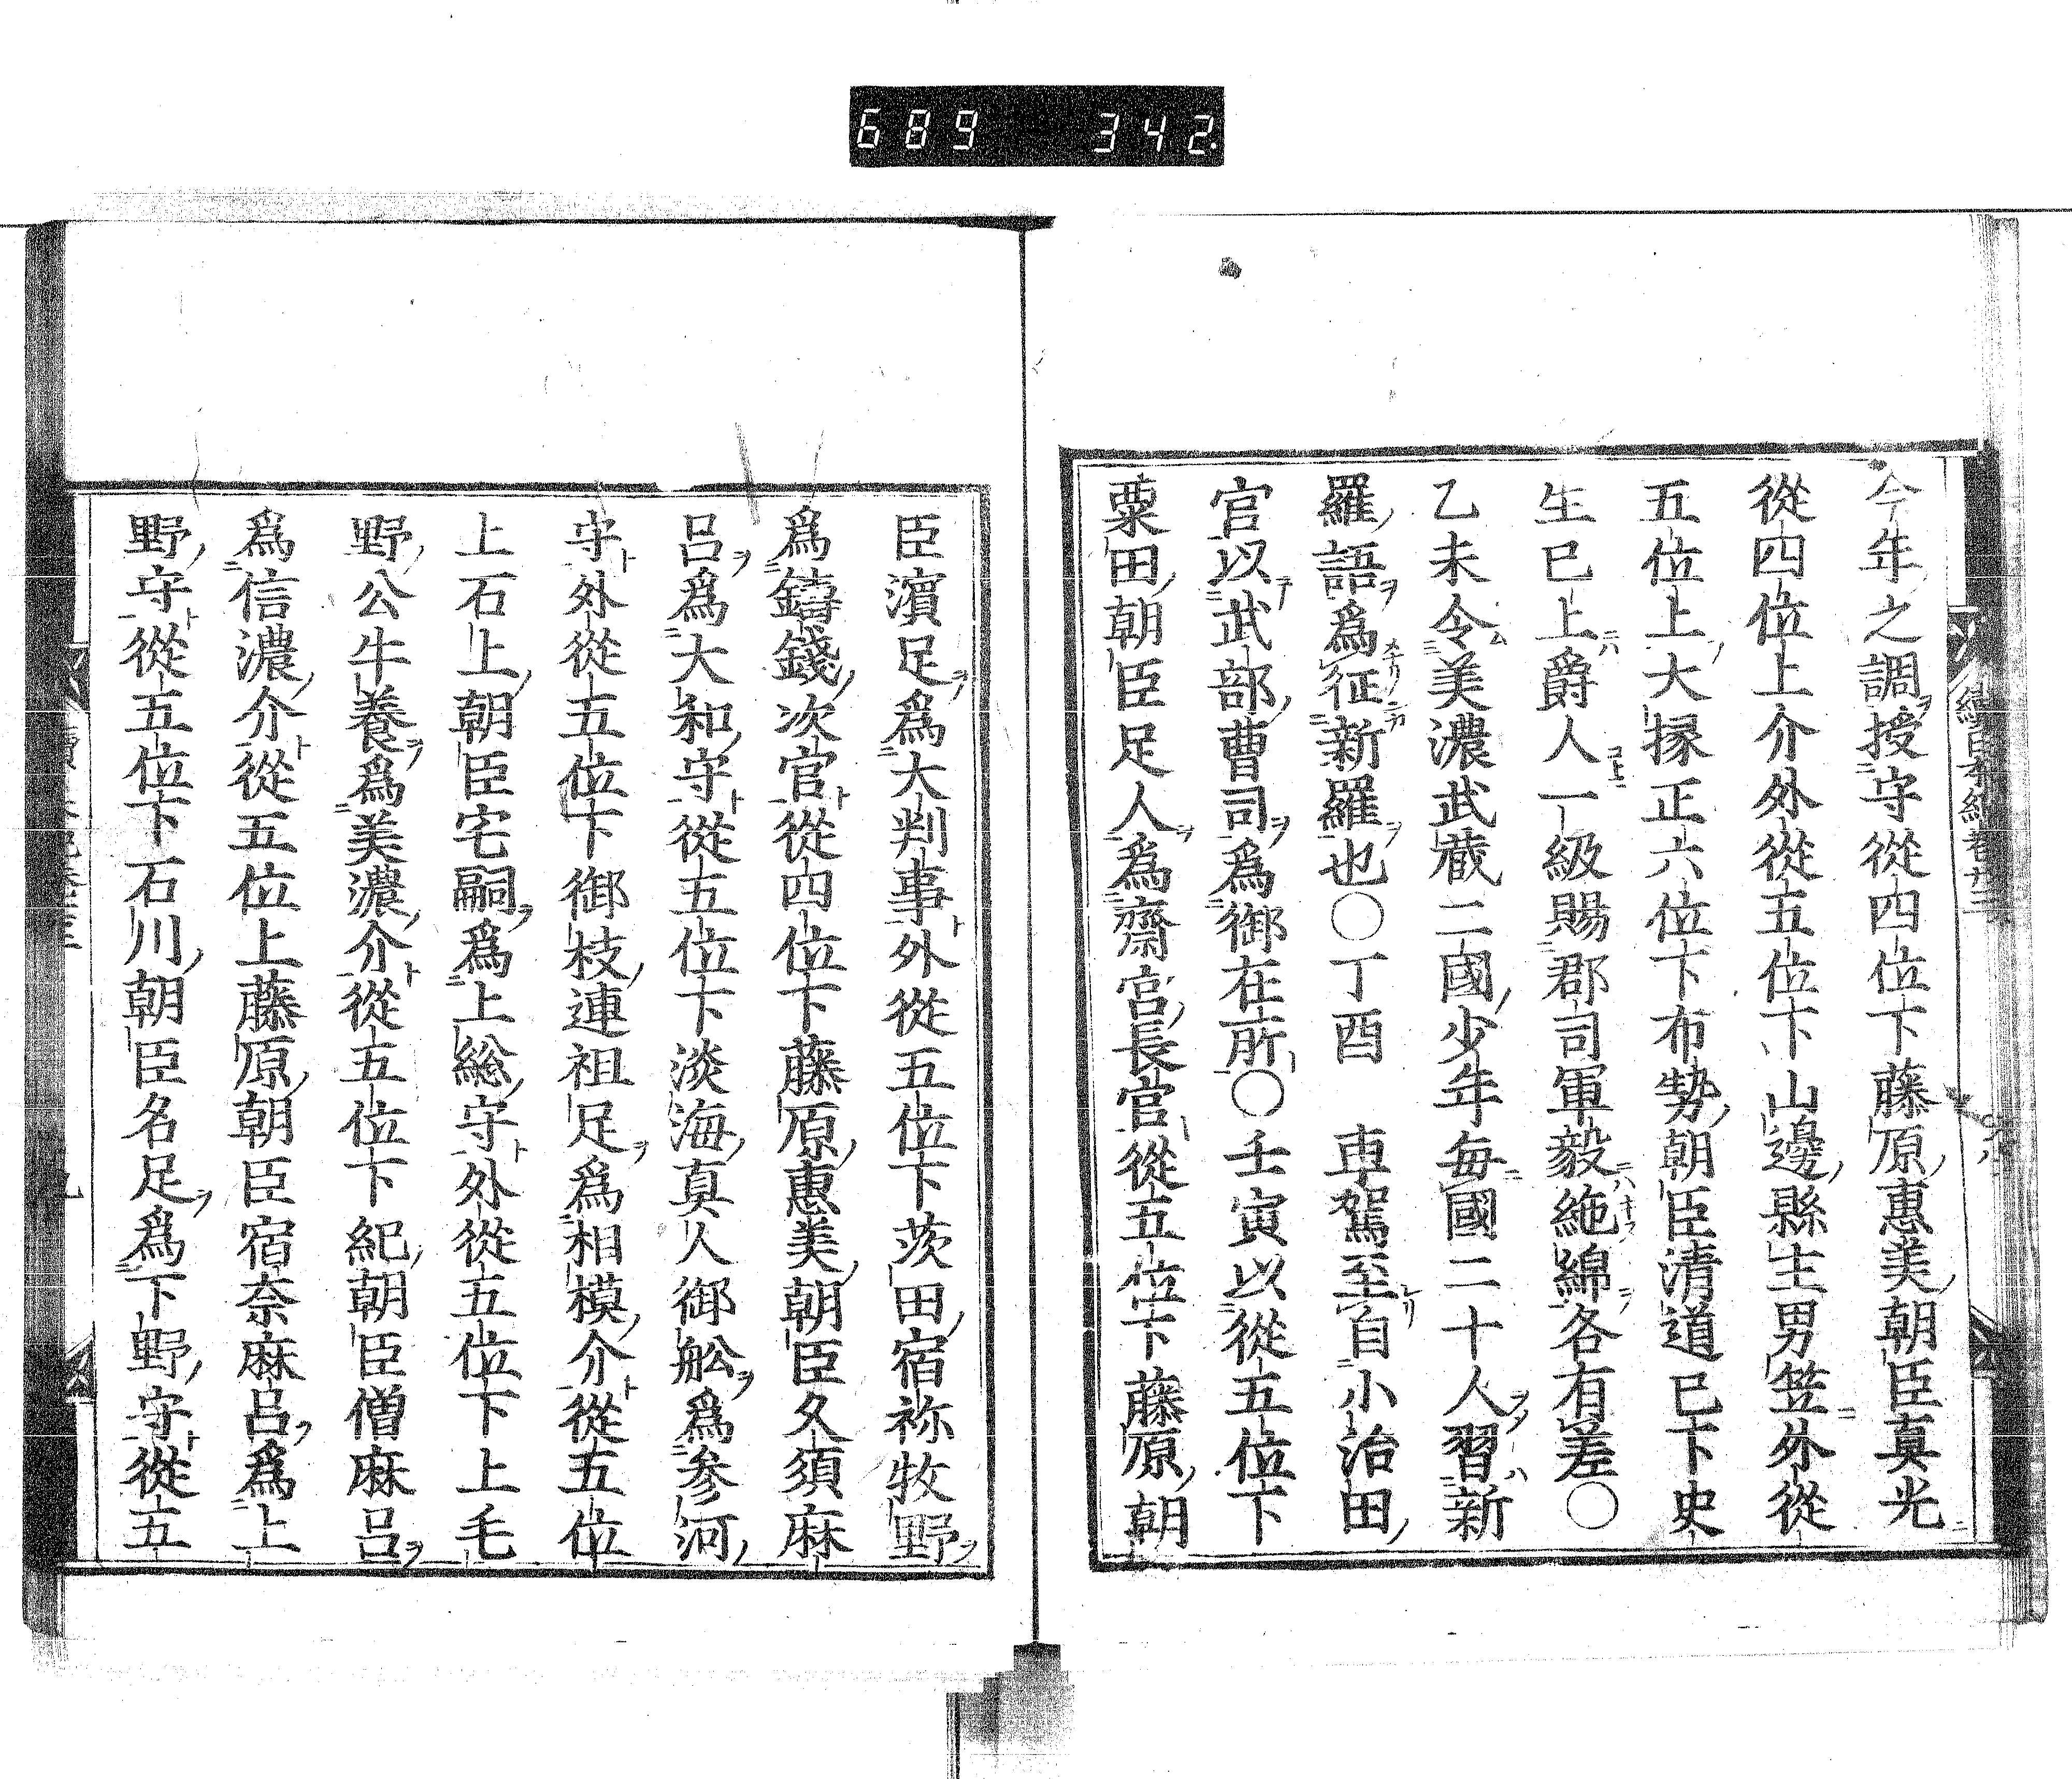 689 342
今年之調授守從四位下藤原惠美朝臣真光
從四位上介外從五位下山邊縣主男笠外從
五位上大掾正六位下布勢朝臣清道已下史
生已上爵人一級賜郡司軍毅絁綿各有差〇
乙未令美濃武蔵二國少年每國二十人習新
羅語爲征新羅也〇丁酉 車駕至自小治田
官以武部曹司爲御在所〇壬寅以從五位下
粟田朝臣足人爲齋宮長官從五位下藤原朝
臣濵足爲大判事外從五位下茨田宿祢牧野
爲鑄錢次官從四位下藤原惠美朝臣久須麻
呂爲大和守從五位下淡海真人御舩爲参河
守外從五位下御枝連祖足爲相模介從五位
上石上朝臣宅嗣爲上総守外從五位下上毛
野公牛養爲美濃介從五位下紀朝臣僧麻呂
爲信濃介從五位上藤原朝臣宿奈麻呂爲上
野守從五位下石川朝臣名足爲下野守從五